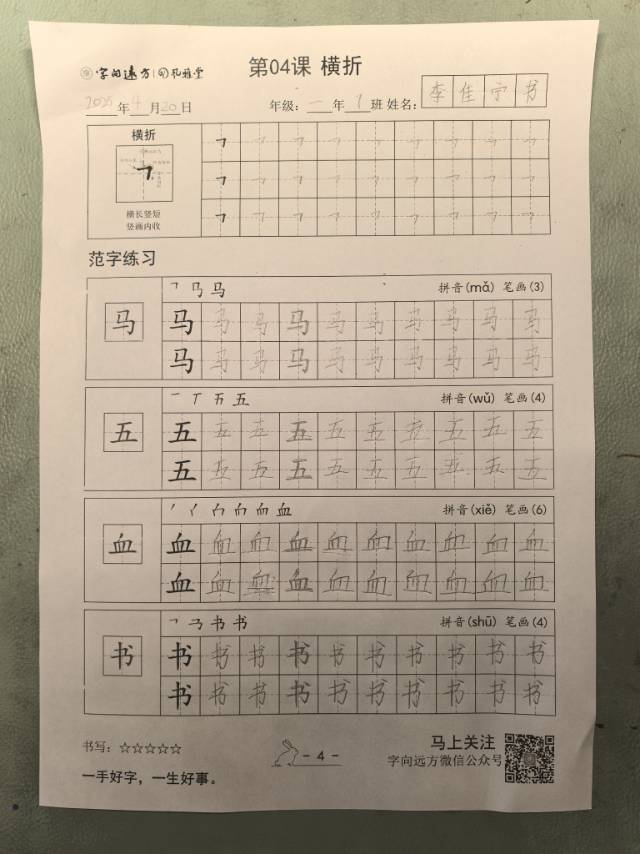 字向远方 孔雅堂
第04课 横折
2025年4月20日 年级：一年1班 姓名：李佳宁书
横折
横长竖短
竖画内收
范字练习
马 拼音(mǎ) 笔画(3)
马 马 马 马 马 马 马 马 马 马 马
马 马 马 马 马 马 马 马 马 马
五 拼音(wǔ) 笔画(4)
五 五 五 五 五 五 五 五 五 五 五
五 五 五 五 五 五 五 五 五 五
血 拼音(xiě) 笔画(6)
血 血 血 血 血 血 血 血 血 血 血
血 血 血 血 血 血 血 血 血 血
书 书 拼音(shū) 笔画(4)
书 书 书 书 书 书 书 书 书 书 书
书 书 书 书 书 书 书 书 书 书
书写：☆☆☆☆☆
- 4 -
马上关注
字向远方微信公众号
一手好字，一生好事。